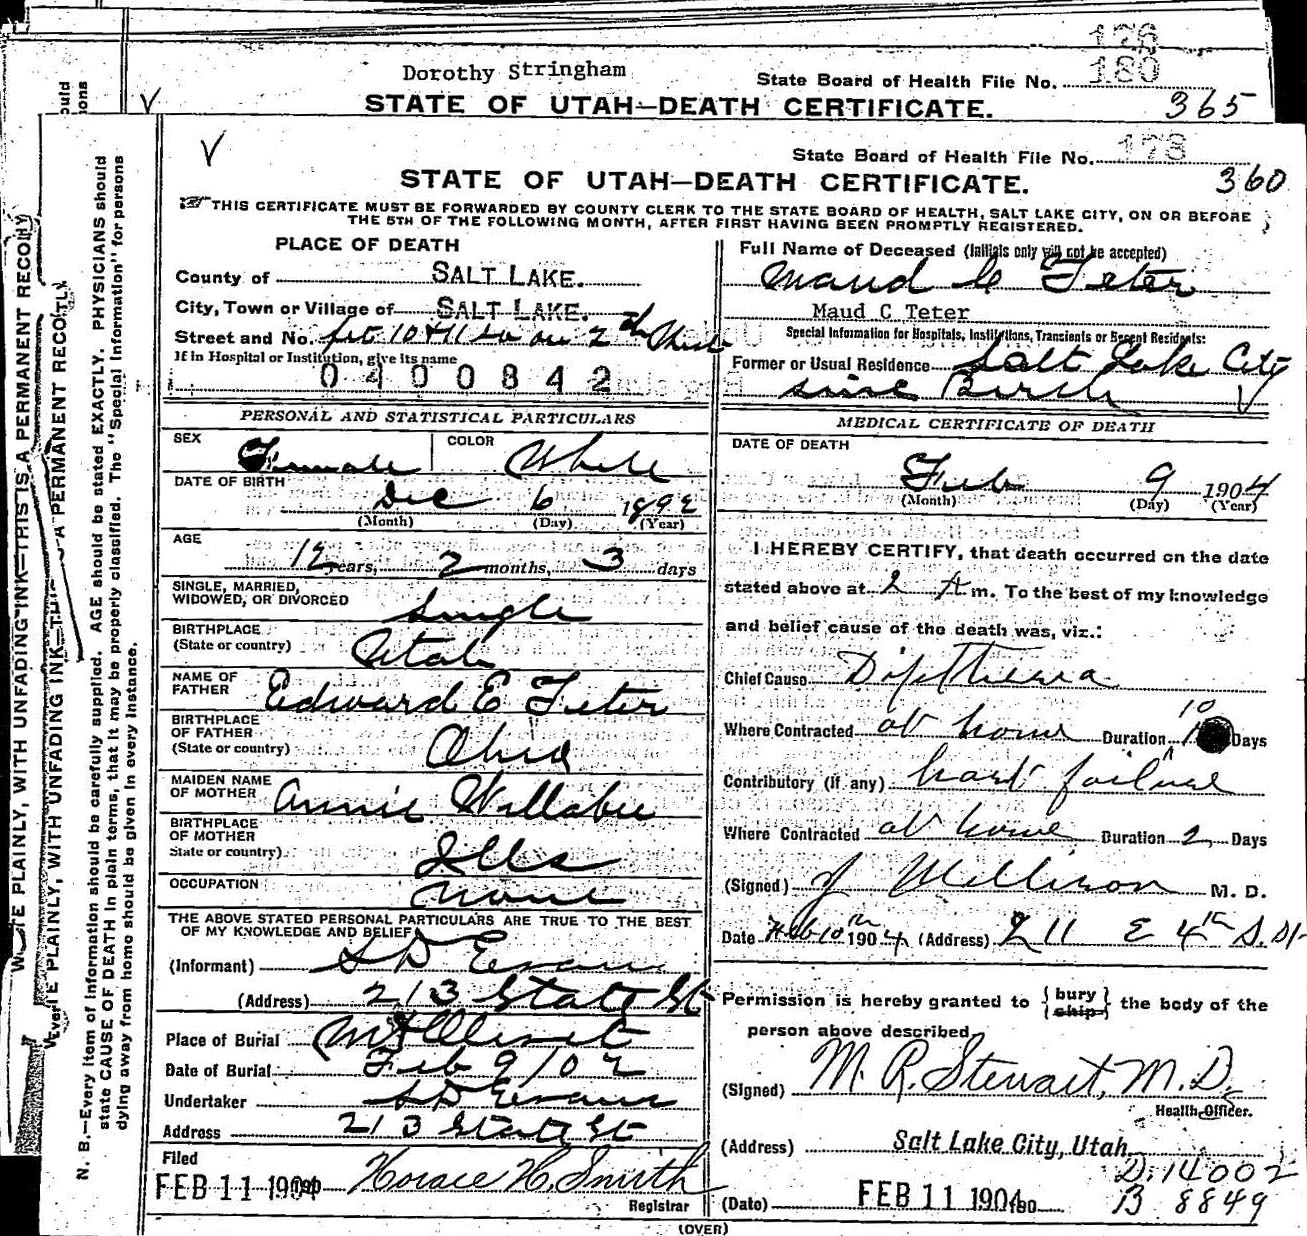 176
Dorothy Stringham
State Board of Health File No. 180
STATE OF UTAH—DEATH CERTIFICATE. 365
V
State Board of Health File No. 178
STATE OF UTAH—DEATH CERTIFICATE. 360
THIS CERTIFICATE MUST BE FORWARDED BY COUNTY CLERK TO THE STATE BOARD OF HEALTH, SALT LAKE CITY, ON OR BEFORE
THE 5TH OF THE FOLLOWING MONTH, AFTER FIRST HAVING BEEN PROMPTLY REGISTERED.
PLACE OF DEATH
County of SALT LAKE.
City, Town or Village of SALT LAKE.
Street and No. bet 10 & 11 So on 2
If in Hospital or Institution, give its name
0400842
PERSONAL AND STATISTICAL PARTICULARS
SEX Female COLOR White
DATE OF BIRTH
Dec 6 1892
(Month) (Day) (Year)
AGE
12 years, 2 months, 3 days
SINGLE, MARRIED,
WIDOWED, OR DIVORCED Single
BIRTHPLACE
(State or country) Utah
NAME OF
FATHER Edward E Teter
BIRTHPLACE
OF FATHER
(State or country) Ohio
MAIDEN NAME
OF MOTHER Annie Willabee
BIRTHPLACE
OF MOTHER
State or country) Ills
OCCUPATION None
THE ABOVE STATED PERSONAL PARTICULARS ARE TRUE TO THE BEST
OF MY KNOWLEDGE AND BELIEF
(Informant) S D Evans
(Address) 213 State St
Place of Burial Mt Olivet
Date of Burial Feb 9/04
Undertaker S D Evans
Address 213 State St
Filed
FEB 11 1904 Horace H. Smith
Registrar
Full Name of Deceased (Initials only will not be accepted)
Maud C Teter
Maud C Teter
Special Information for Hospitals, Institutions, Transients or Recent Residents:
Former or Usual Residence Salt Lake City
since Birth V
MEDICAL CERTIFICATE OF DEATH
DATE OF DEATH
Feb 9 1904
(Month) (Day) (Year)
I HEREBY CERTIFY, that death occurred on the date
stated above at 2 A m. To the best of my knowledge
and belief cause of the death was, viz.:
Chief Cause Diptheria
Where Contracted at home Duration 10 Days
Contributory (if any) heart failure
Where Contracted at home Duration 2 Days
(Signed) J Mellison M. D.
Date Feb 10th 1904 (Address) 211 E 4th S. St
Permission is hereby granted to {bury ship} the body of the
person above described.
(Signed) M. R. Stewart, M. D.
Health Officer.
(Address) Salt Lake City, Utah.
D. 14002
(Date) FEB 11 1904 190 B 8849
(OVER)
WRITE PLAINLY, WITH UNFADING INK—THIS IS A PERMANENT RECORD
WRITE PLAINLY, WITH UNFADING INK—THIS IS A PERMANENT RECORD.
N. B.—Every item of information should be carefully supplied. AGE should be stated EXACTLY. PHYSICIANS should
state CAUSE OF DEATH in plain terms, that it may be properly classified. The "Special Information" for persons
dying away from home should be given in every instance.